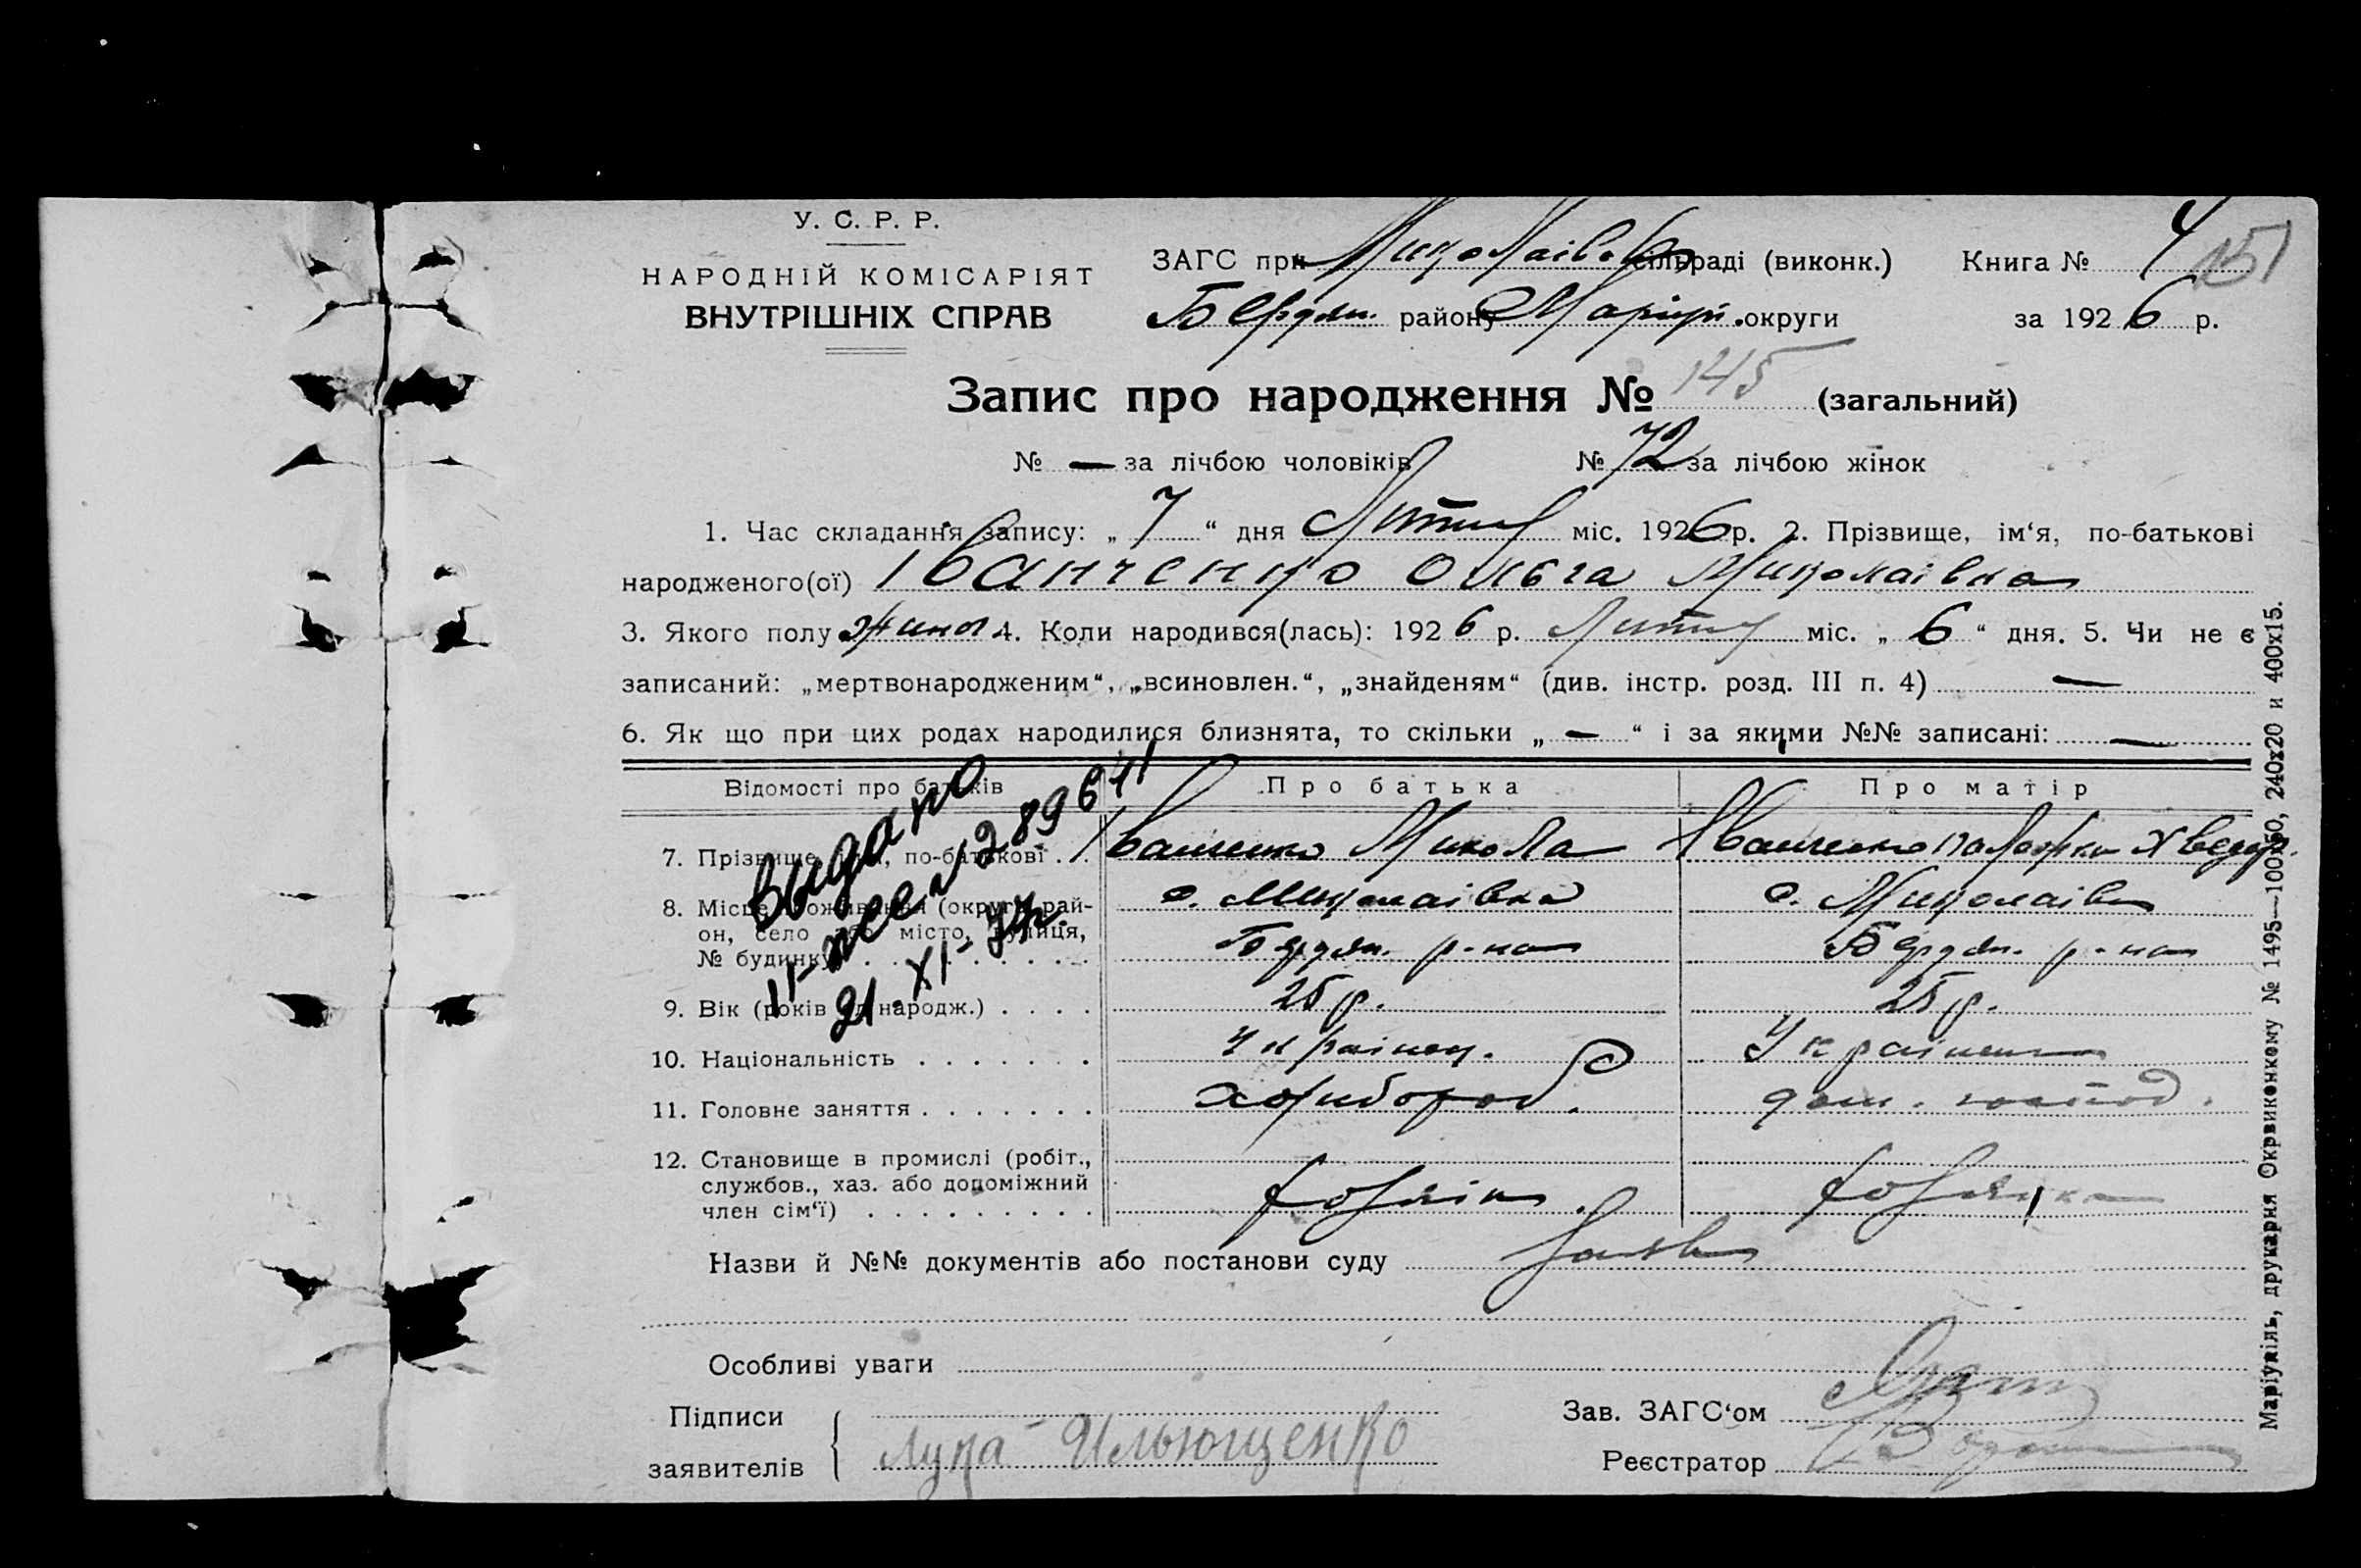 У. С. Р. Р.
НАРОДНІЙ КОМІСАРІЯТ
ВНУТРІШНІХ СПРАВ
ЗАГС при Миколаівс сільраді (виконк.) Книга № 4 151
Бердян. району Маріуп. округи за 1926 р.
Запис про народження № 145 (загальний)
№ — за лічбою чоловіків № 72 за лічбою жінок
1. Час складання запису: „ 7 “ дня Лютий міс. 1926 р. 2. Прізвище, ім‘я, по-батькові
народженого(ої) Іванченко Ольга Миколаівна
3. Якого полу жиноч 4. Коли народився(лась): 1926 р. Лютий міс. „ 6 “ дня. 5. Чи не є
записаний: „мертвонародженим“, „всиновлен.“, „знайденям“ (див. інстр. розд. III п. 4) —
6. Як що при цих родах народилися близнята, то скільки „ — “ і за якими №№ записані: —
Відомості про батьків Про батька Про матір
7. Прізвище, ім‘я, по-батькові . . Іванченко Микола Іванченко Хведор.
8. Місце проживання (округа, рай- с. Миколаівка с. Миколаівка
он, село або місто, вулиця, Бердян. р-на Бердян. р-на
№ будинку) . . . . . . . . .
9. Вік (років від народж.) . . . . 25 р. 25 р.
10. Національність . . . . . . . Украінец. Украінка
11. Головне заняття . . . . . . . хлібороб. дом. господ.
12. Становище в промислі (робіт.,
службов., хаз. або допоміжний
член сім‘ї) . . . . . . . . . хозяін. хозяйка
Видано
21.XI-
Назви й №№ документів або постанови суду Заява
Особливі уваги
Підписи Зав. ЗАГС‘ом
заявителів Лука Ильющенко Реєстратор
Маріупіль, друкарня Окрвиконкому № 1495—100х50, 240х20 и 400х15.